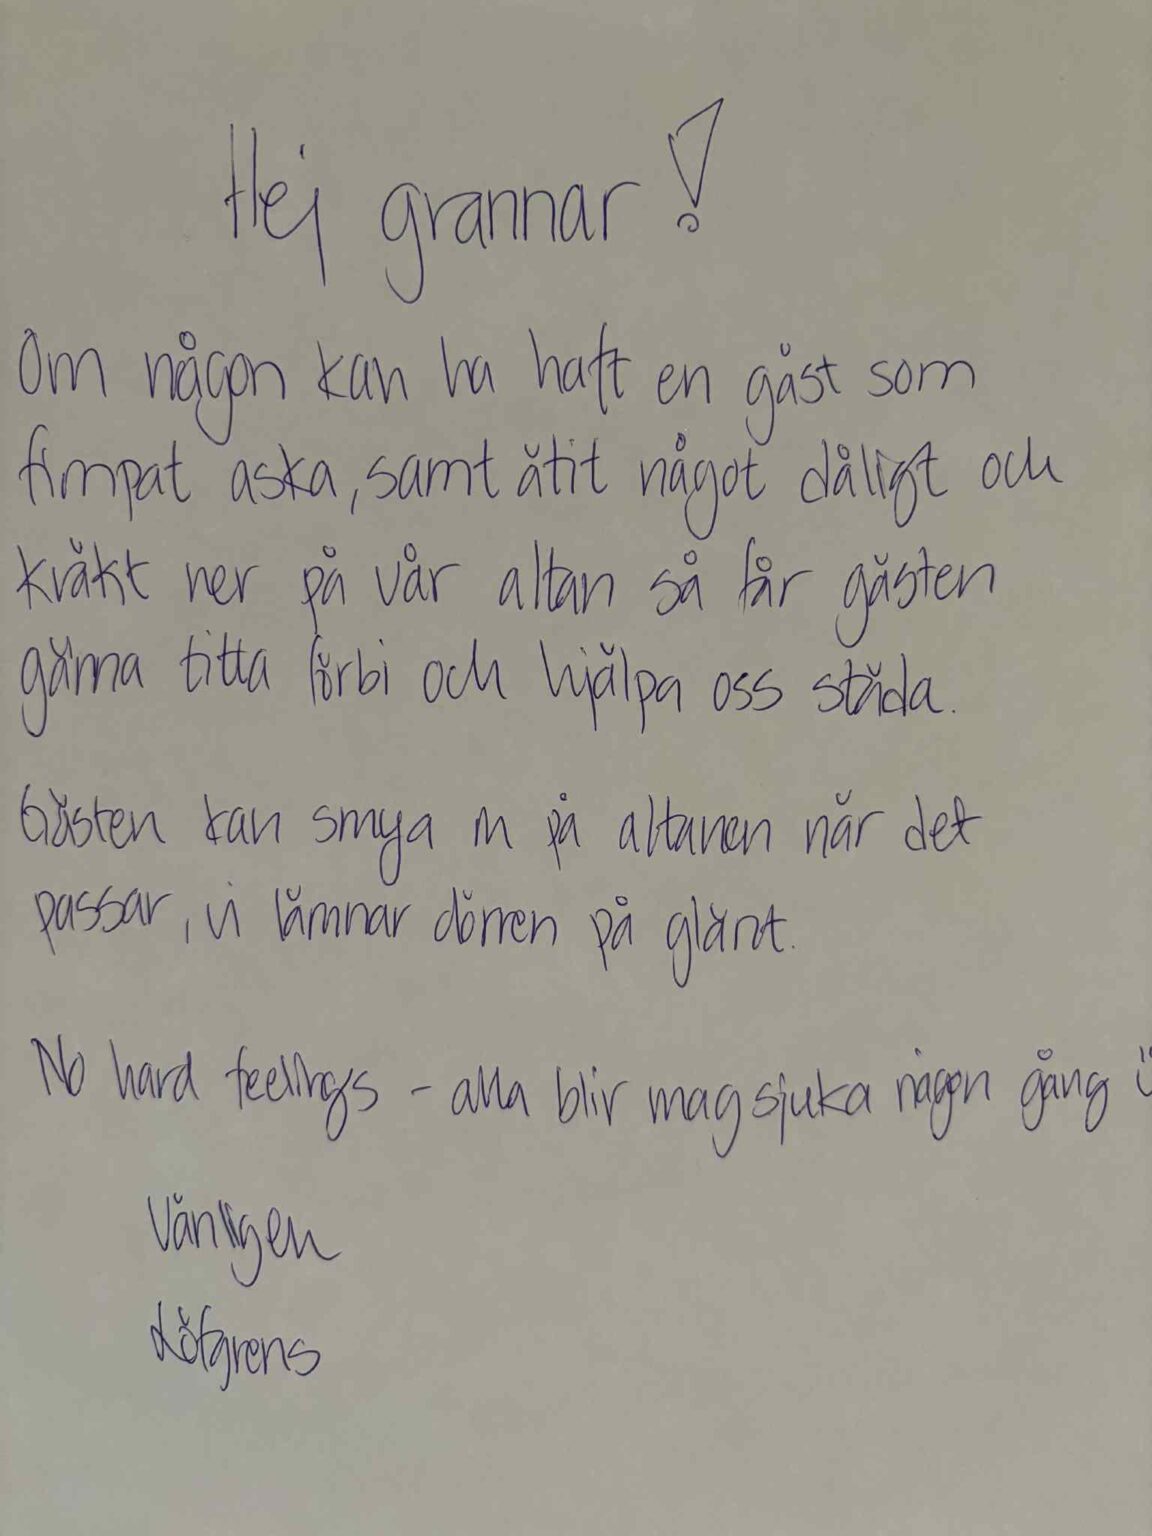 Hej grannar!
Om någon kan ha haft en gäst som
fimpat aska, samt ätit något dåligt och
kräkt ner på vår altan så får gästen
gärna titta förbi och hjälpa oss städa.
Gästen kan smyga in på altanen när det
passar, vi lämnar dörren på glänt.
No hard feelings - alla blir magsjuka någon gång Ü
Vänligen
Löfgrens